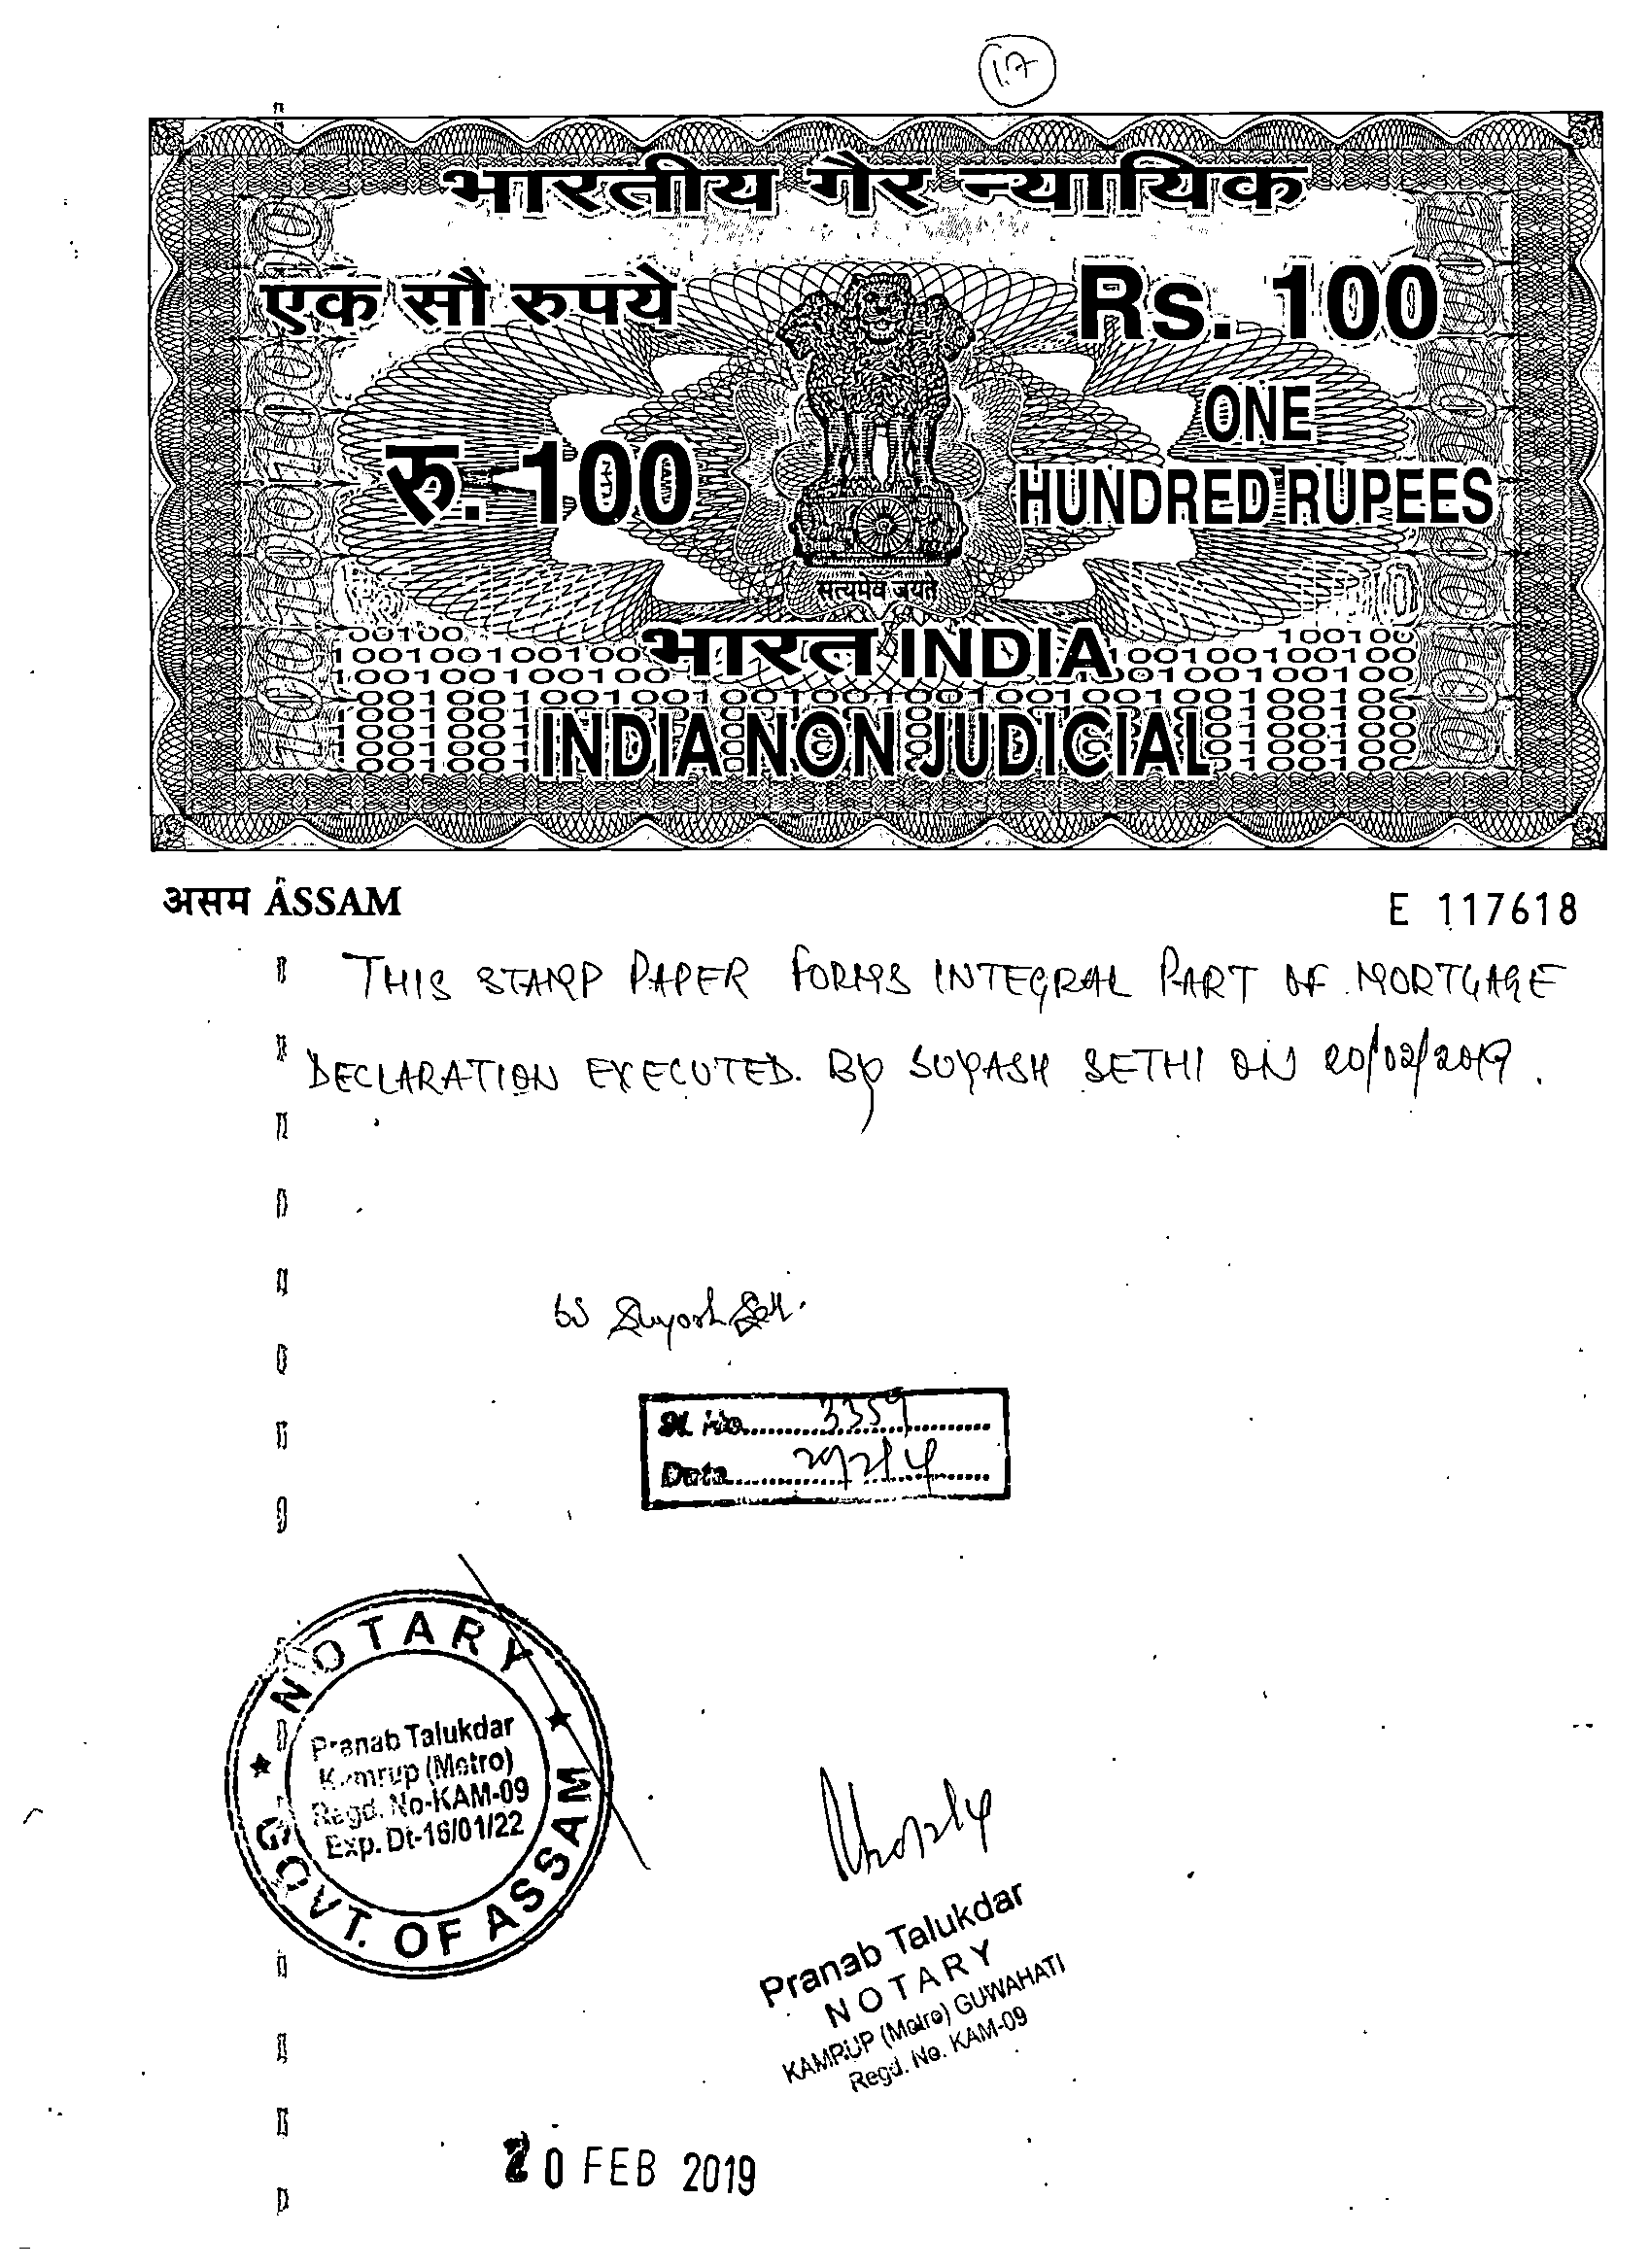 17
भारतीय गैर न्यायिक
एक सौ रुपये
Rs. 100
रु. 100
ONE
HUNDRED RUPEES
सत्यमेव जयते
भारत INDIA
INDIA NON JUDICIAL
असम ASSAM
E 117618
THIS STAMP PAPER FORMS INTEGRAL PART OF MORTGAGE
DECLARATION EXECUTED. By SUYASH SETHI ON 20/02/2019.
Sl. No. 3359
Date
NOTARY
Pranab Talukdar
Kamrup (Metro)
Regd. No-KAM-09
Exp. Dt-16/01/22
GOVT. OF ASSAM
Pranab Talukdar
NOTARY
KAMRUP (Metro) GUWAHATI
Regd. No. KAM-09
20 FEB 2019